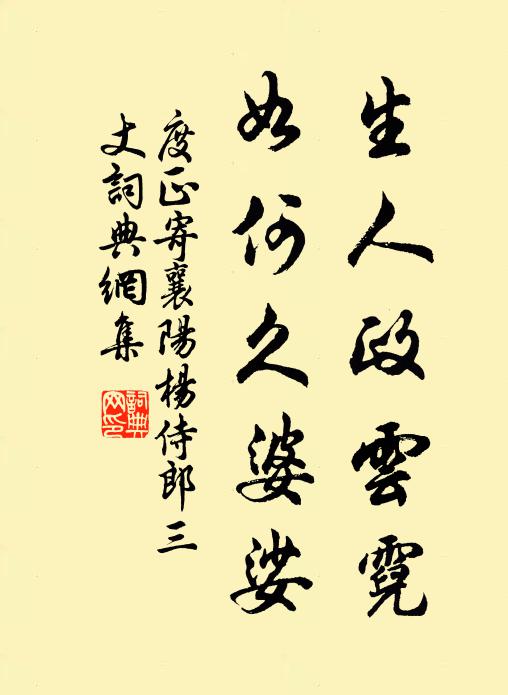 生人政雲霓
如何久婆娑
度正寄襄陽楊侍郎三
文詞典網集
詞典
网印